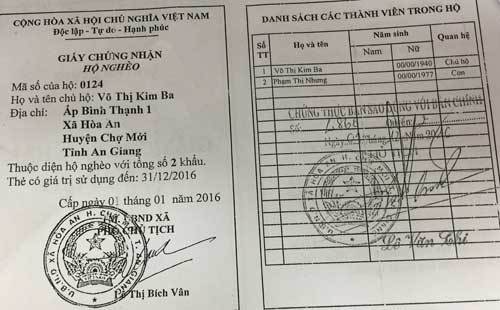 CỘNG HÒA XÃ HỘI CHỦ NGHĨA VIỆT NAM
Độc lập - Tự do - Hạnh phúc
GIẤY CHỨNG NHẬN
HỘ NGHÈO
Mã số của hộ: 0124
Họ và tên chủ hộ: Võ Thị Kim Ba
Địa chỉ: Ấp Bình Thạnh 1
Xã Hòa An
Huyện Chợ Mới
Tỉnh An Giang
Thuộc diện hộ nghèo với tổng số 2 khẩu.
Thẻ có giá trị sử dụng đến: 31/12/2016
Cấp ngày 01 tháng 01 năm 2016
TM. UBND XÃ
PHÓ CHỦ TỊCH
U.B.N.D XÃ HÒA AN H. CHỢ MỚI T. AN GIANG
Lê Thị Bích Vân
DANH SÁCH CÁC THÀNH VIÊN TRONG HỘ
Số TT Họ và tên Năm sinh Quan hệ
Nam Nữ
1 Võ Thị Kim Ba 00/00/1940 Chủ hộ
2 Phạm Thị Nhung 00/00/1977 Con
CHỨNG THỰC BẢN SAO ĐÚNG VỚI BẢN CHÍNH
Số: 1868
Ngày